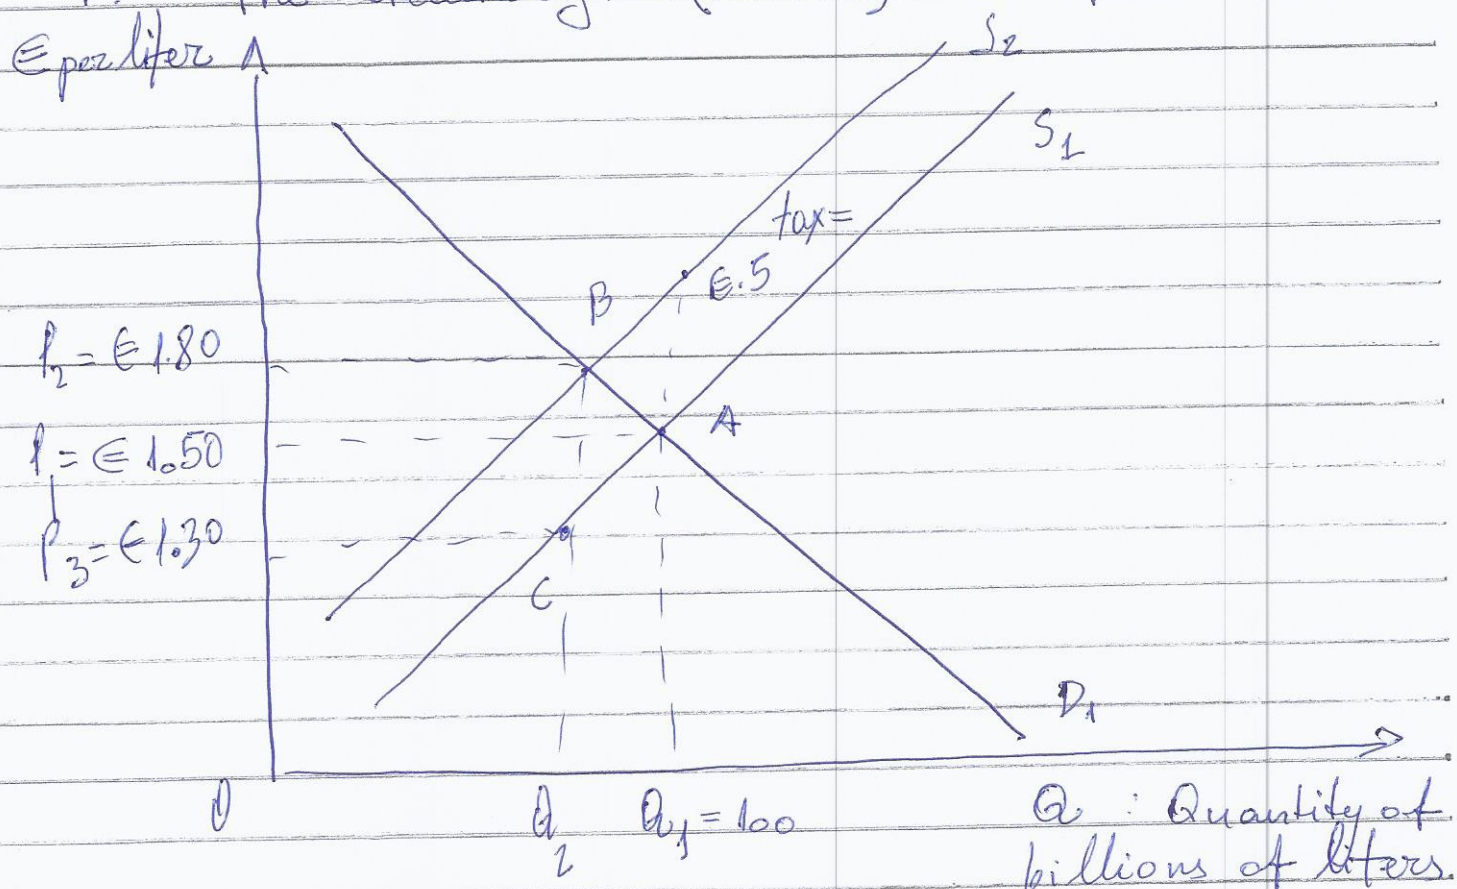 € per liter
S2
S1
tax=
€.5
B
P2 = € 1.80
A
P1 = € 1.50
P3 = € 1.30
C
D1
0
Q2
Q1 = 100
Q : Quantity of
billions of liters